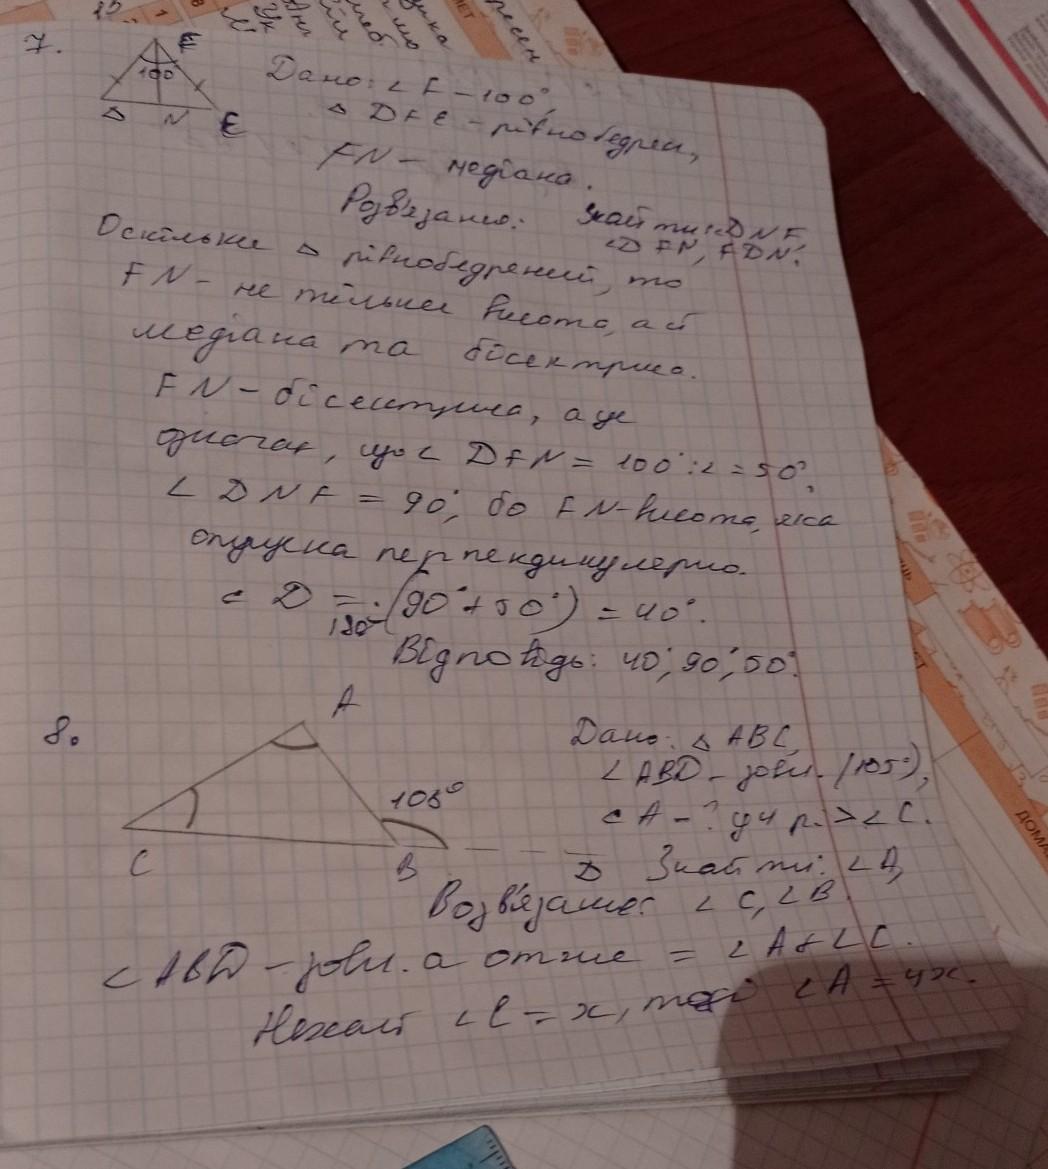 7.
F
100°
D N E
Дано: ∠F - 100°,
△ DFE - рівнобедрен,
FN - медіана.
Розв'язання: Знайти: ∠DNF,
∠DFN, FDN.
Оскільки △ рівнобедрений, то
FN - не тільки висота, а й
медіана та бісектриса.
FN - бісектриса, а це
означає, що ∠ DFN = 100°:2 = 50°,
∠ DNF = 90°, бо FN-висота, яка
опущена перпендикулярно.
∠ D = 180° - (90° + 50°) = 40°.
Відповідь: 40°, 90°, 50°.
8.
A
105°
C B D
Дано: △ ABC,
∠ABD - зовн. (105°),
∠A - ? у 4 р. > ∠C.
Знайти: ∠A,
∠C, ∠B.
Розв'язання:
∠ABD - зовн. а отже = ∠A + ∠C.
Нехай ∠C = x, тоді ∠A = 4x.